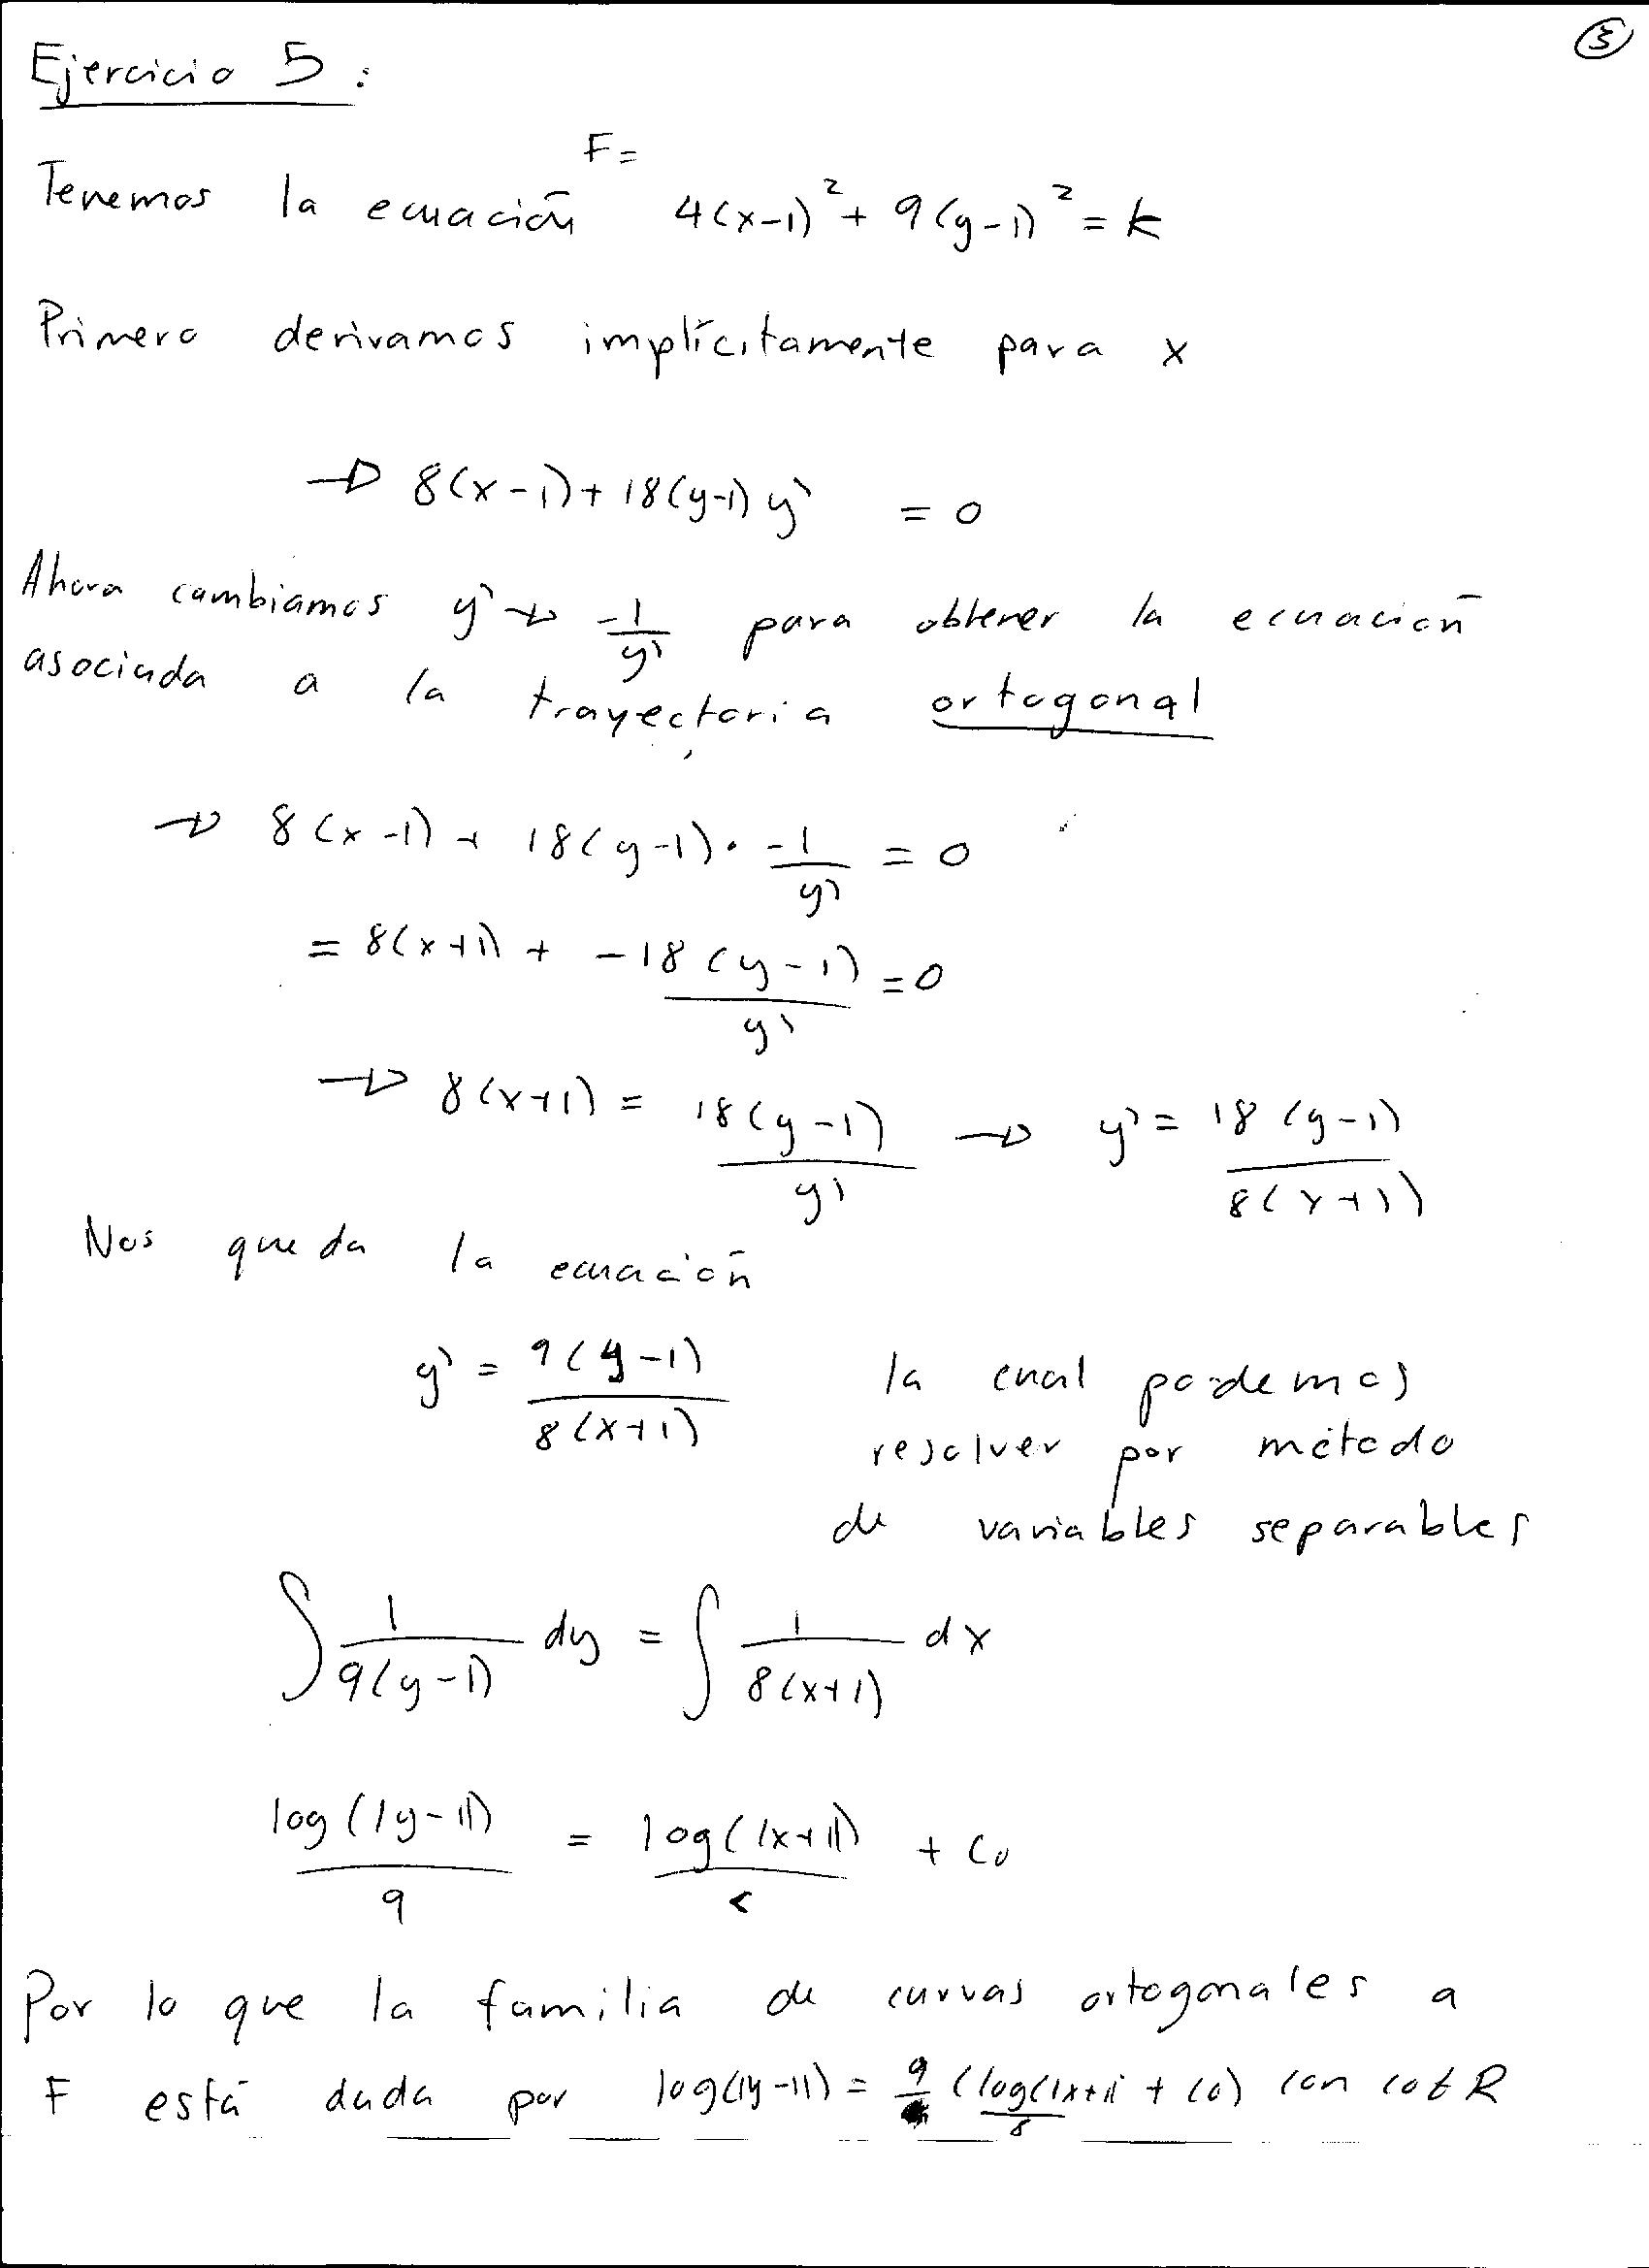 ③
Ejercicio 5:
F =
Tenemos la ecuación 4(x-1)² + 9(y-1)² = k
Primero derivamos implícitamente para x
→ 8(x-1) + 18(y-1) y' = 0
Ahora cambiamos y' → -1/y' para obtener la ecuación
asociada a la trayectoria ortogonal
→ 8(x-1) + 18(y-1) · -1/y' = 0
= 8(x+1) + -18(y-1)/y' = 0
→ 8(x+1) = 18(y-1)/y' → y' = 18(y-1)/8(x+1)
Nos queda la ecuación
y' = 9(y-1)/8(x+1) la cual podemos
resolver por método
de variables separables
∫ 1/9(y-1) dy = ∫ 1/8(x+1) dx
log(|y-1|)/9 = log(|x+1|)/8 + C₀
Por lo que la familia de curvas ortogonales a
F está dada por log(|y-1|) = 9 (log(|x+1|)/8 + C₀) con C₀ ∈ R